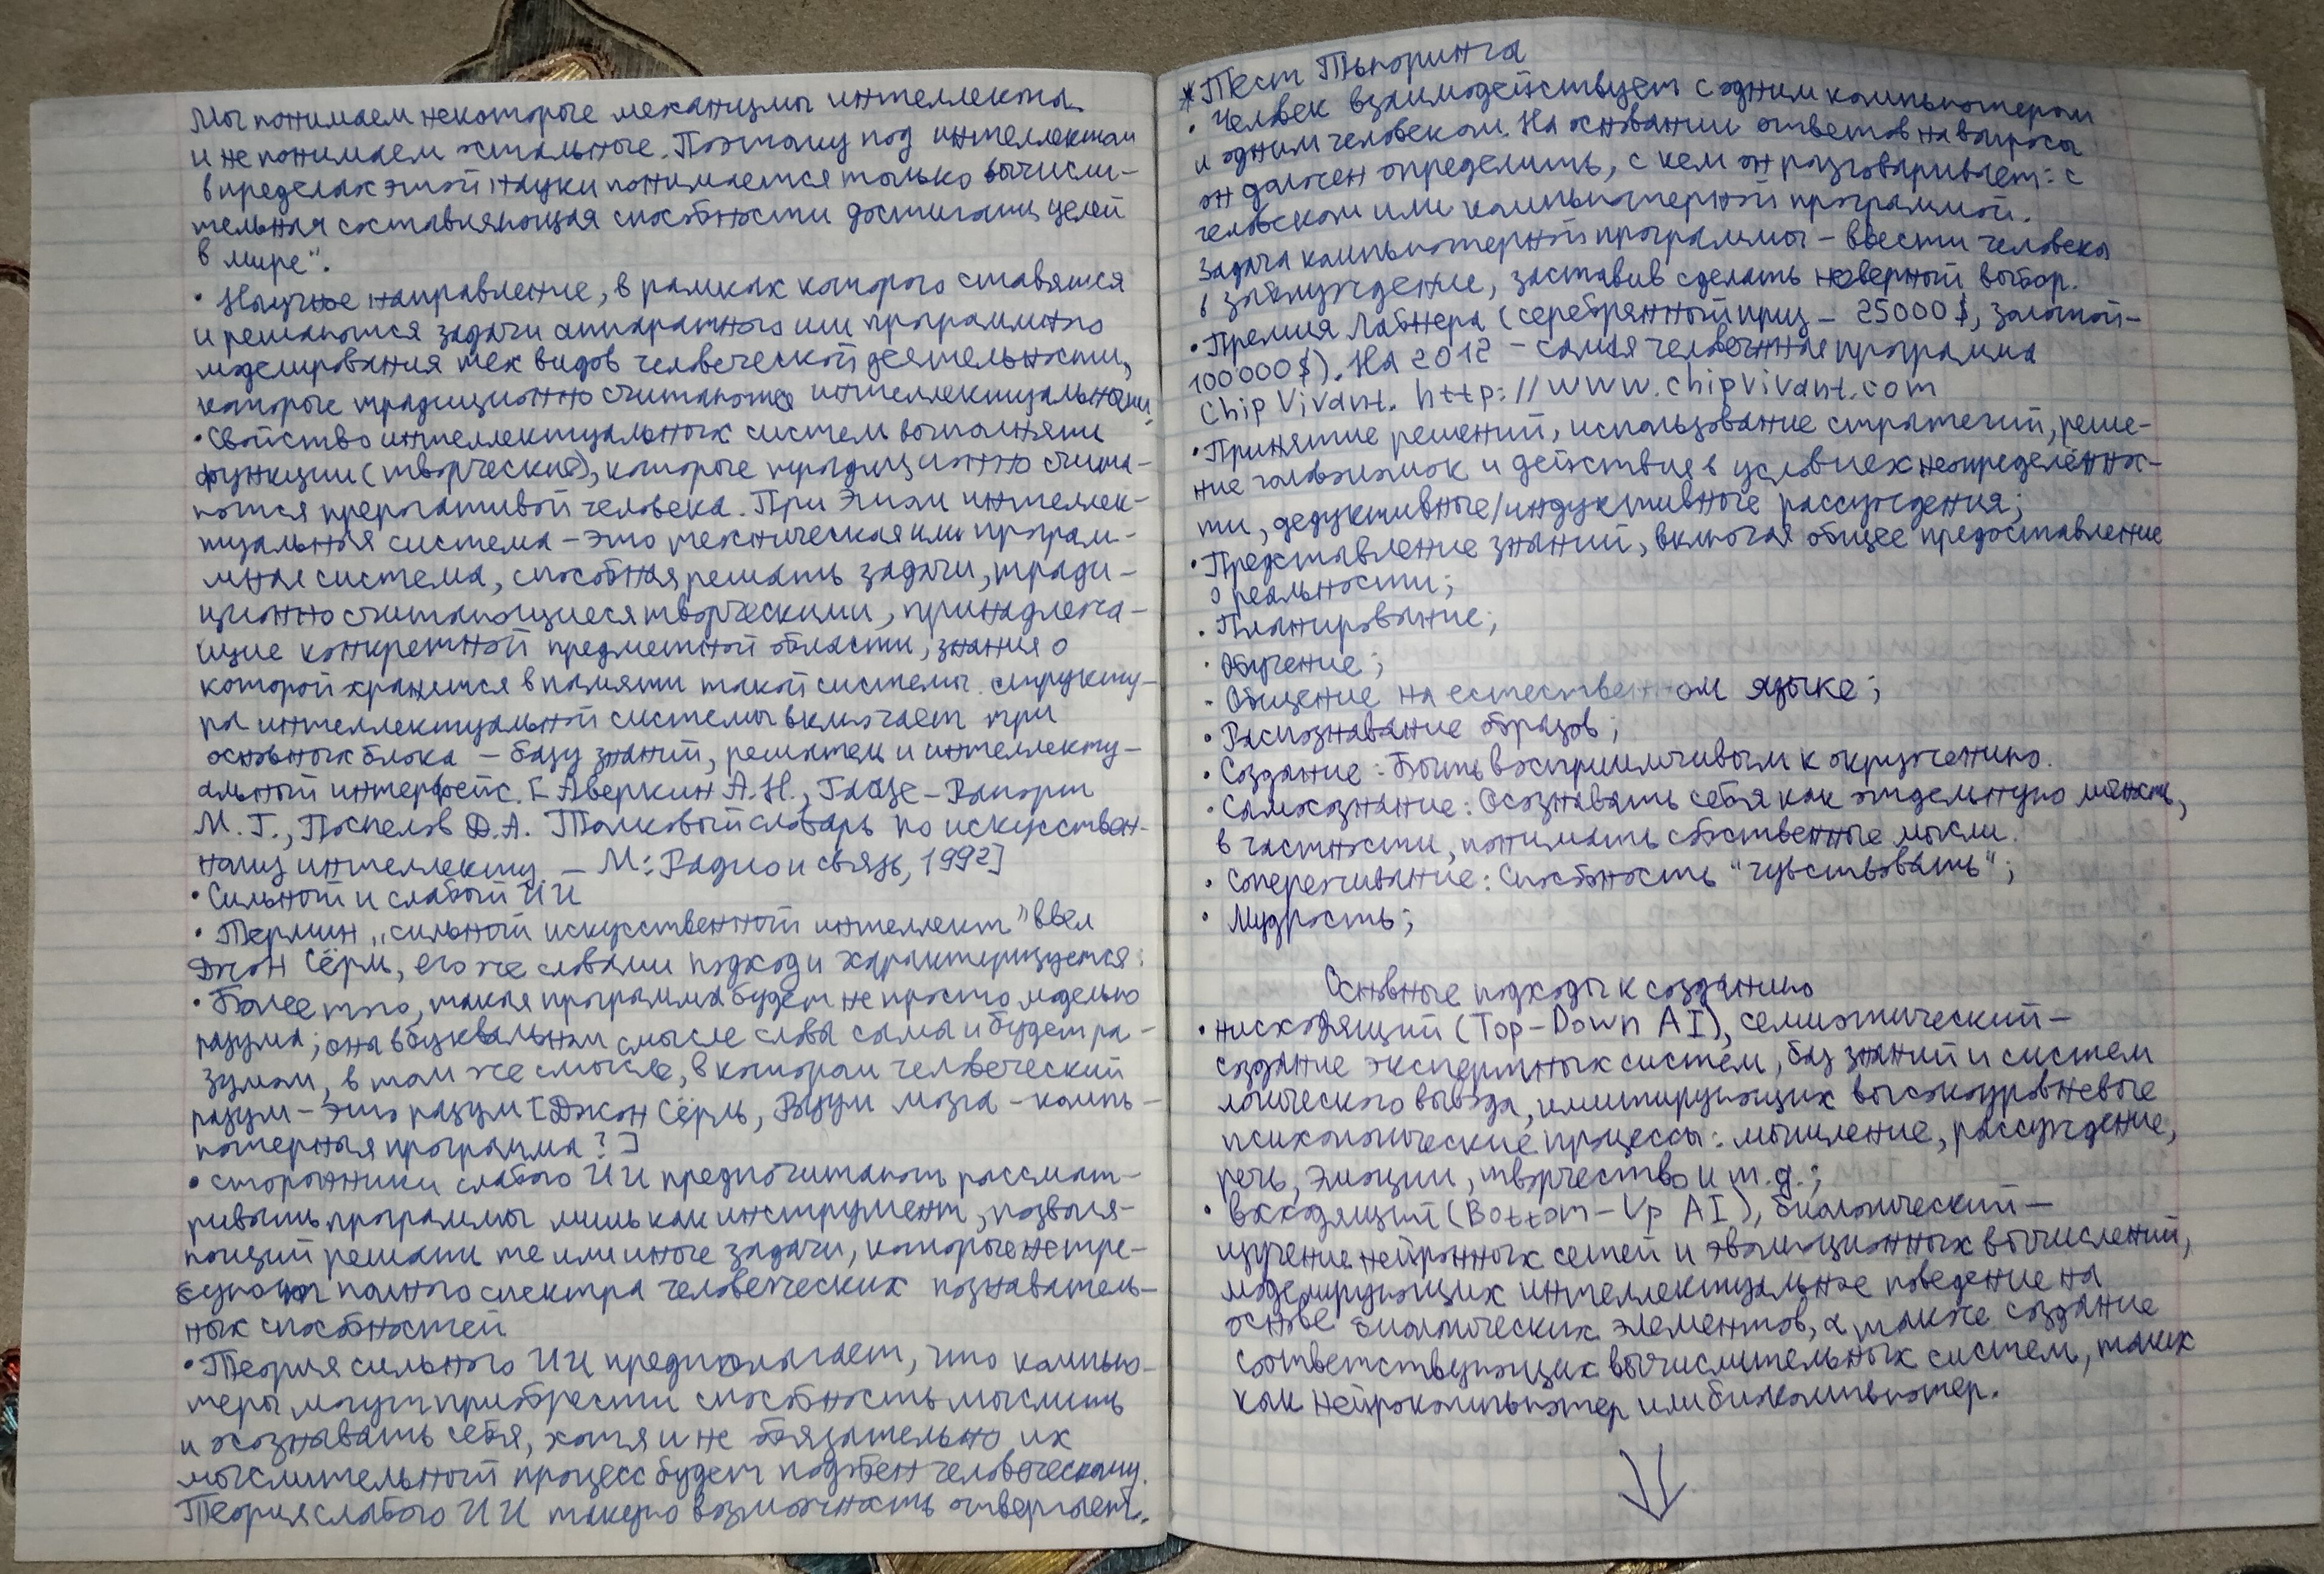 Мы понимаем некоторые механизмы интеллекта
и не понимаем остальные. Поэтому под интеллектом
в пределах этой науки понимается только вычисли-
тельная составляющая способности достигать целей
в мире".
• Научное направление, в рамках которого ставятся
и решаются задачи аппаратного или программного
моделирования тех видов человеческой деятельности,
которые традиционно считаются интеллектуальными.
• Свойство интеллектуальных систем выполнять
функции (творческие), которые традиционно счита-
ются прерогативой человека. При этом интеллек-
туальная система – это техническая или програм-
мная система, способная решать задачи, тради-
ционно считающиеся творческими, принадлежа-
щие конкретной предметной области, знания о
которой хранятся в памяти такой системы. Структу-
ра интеллектуальной системы включает три
основных блока – базу знаний, решатель и интеллекту-
альный интерфейс. [Аверкин А.Н., Гаазе-Рапопорт
М.Г., Поспелов Д.А. Толковый словарь по искусствен-
ному интеллекту. – М: Радио и связь, 1992]
• Сильный и слабый ИИ
• Термин „сильный искусственный интеллект" ввел
Джон Сёрль, его же словами подход и характеризуется:
• Более того, такая программа будет не просто моделью
разума; она в буквальном смысле слова сама и будет ра-
зумом, в том же смысле, в котором человеческий
разум – это разум [Джон Сёрль, Разум мозга – компь-
ютерная программа?]
• Сторонники слабого ИИ предпочитают рассмат-
ривать программы лишь как инструмент, позволя-
ющий решать те или иные задачи, которые не тре-
буют полного спектра человеческих познаватель-
ных способностей
• Теория сильного ИИ предполагает, что компью-
теры могут приобрести способность мыслить
и осознавать себя, хотя и не обязательно их
мыслительный процесс будет подобен человеческому.
Теория слабого ИИ такую возможность отвергает.
* Тест Тьюринга
• Человек взаимодействует с одним компьютером
и одним человеком. На основании ответов на вопросы
он должен определить, с кем он разговаривает: с
человеком или компьютерной программой.
Задача компьютерной программы – ввести человека
в заблуждение, заставив сделать неверный выбор.
• Премия Лабнера (серебрянный приз – 25000$, золотой –
100000$). На 2012 – самая человечная программа
Chip Vivant. http://www.chipvivant.com
• Принятие решений, использование стратегий, реше-
ние головоломок и действия в условиях неопределённос-
ти, дедуктивные/индуктивные рассуждения;
• Представление знаний, включая общее предоставление
о реальности;
• Планирование;
• Обучение;
• Общение на естественном языке;
• Распознавание образов;
• Создание: Быть восприимчивым к окружению.
• Самосознание: Осознавать себя как отдельную личность,
в частности, понимать собственные мысли.
• Сопереживание: Способность "чувствовать";
• Мудрость;
Основные подходы к созданию
• нисходящий (Top-Down AI), семиотический –
создание экспертных систем, баз знаний и систем
логического вывода, имитирующих высокоуровневые
психологические процессы: мышление, рассуждение,
речь, эмоции, творчество и т.д.;
• Входящий (Bottom-Up AI), биологический –
изучение нейронных сетей и эволюционных вычислений,
моделирующих интеллектуальное поведение на
основе биологических элементов, а также создание
соответствующих вычислительных систем, таких
как нейрокомпьютер или биокомпьютер.